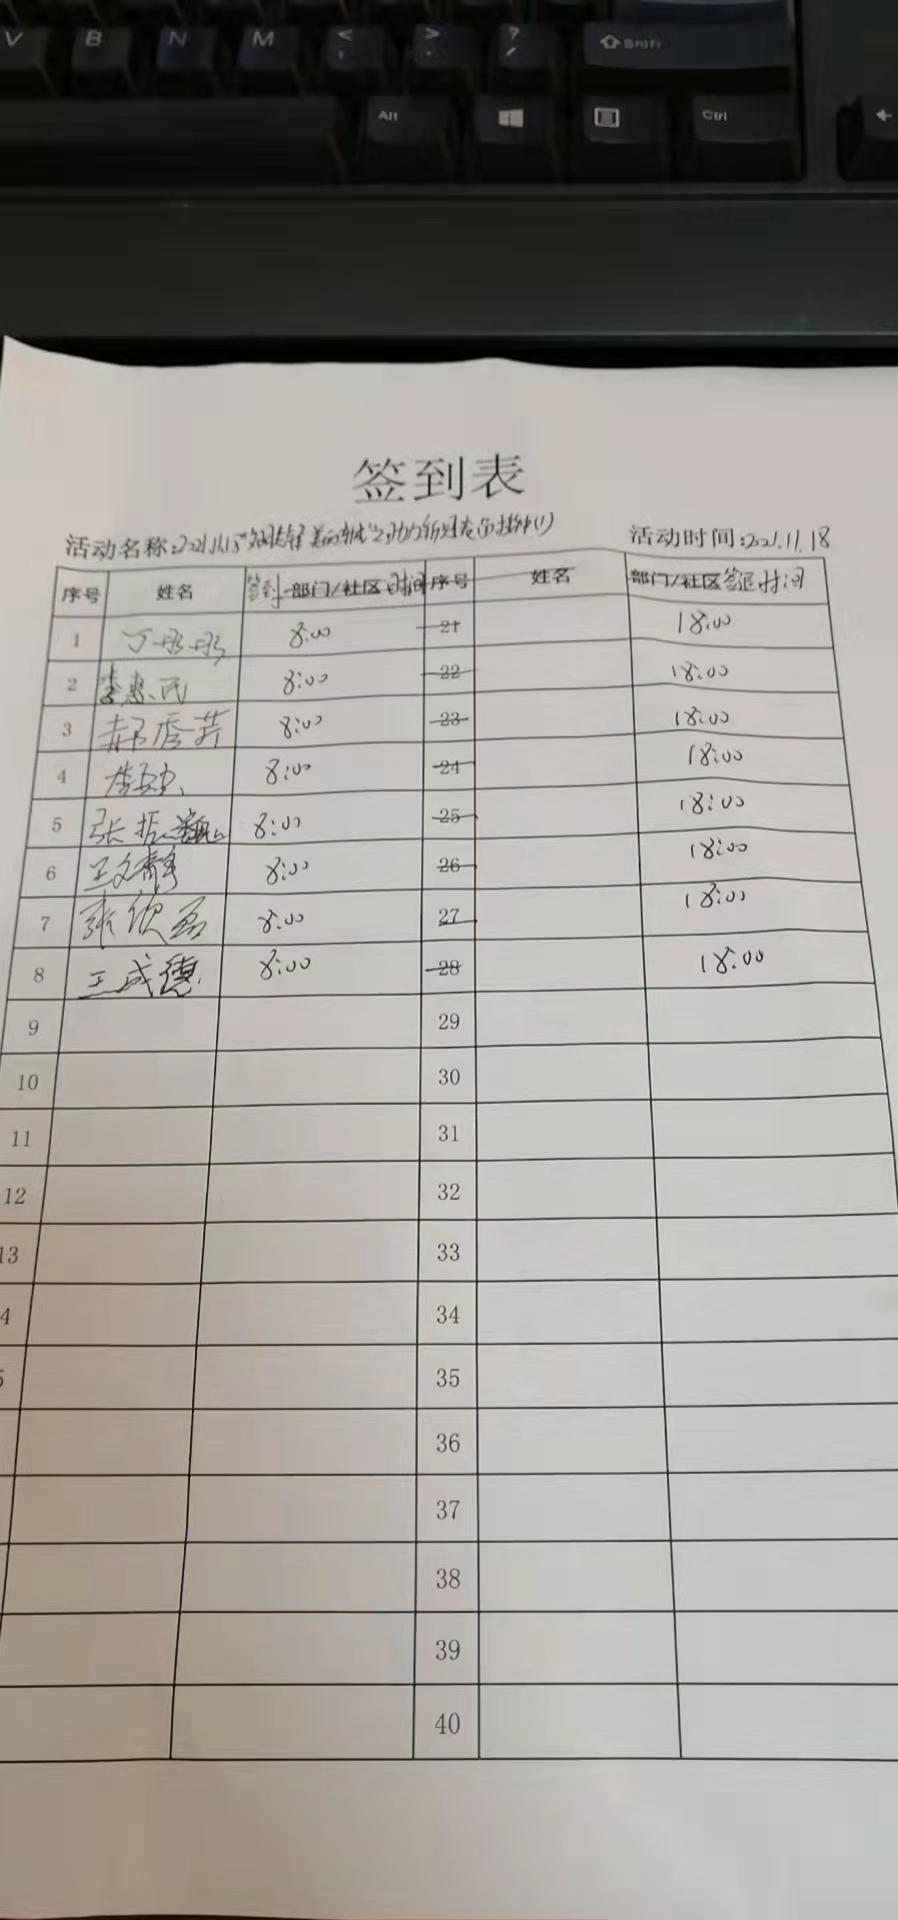 V B N M < , > . ? / Shift
Alt Ctrl
签到表
活动名称:2021.11.15" 活动时间:2021.11.18
序号 姓名 签到 部门/社区 时间 序号 姓名 部门/社区 签退时间
1 丁彤彤 8:00 21 18:00
2 李惠民 8:00 22 18:00
3 郝秀芹 8:00 23 18:00
4 8:00 24 18:00
5 张振 8:00 25 18:00
6 王文静 8:00 26 18:00
7 张欣磊 8:00 27 18:00
8 王成德 8:00 28 18:00
9 29
10 30
11 31
12 32
13 33
4 34
5 35
36
37
38
39
40